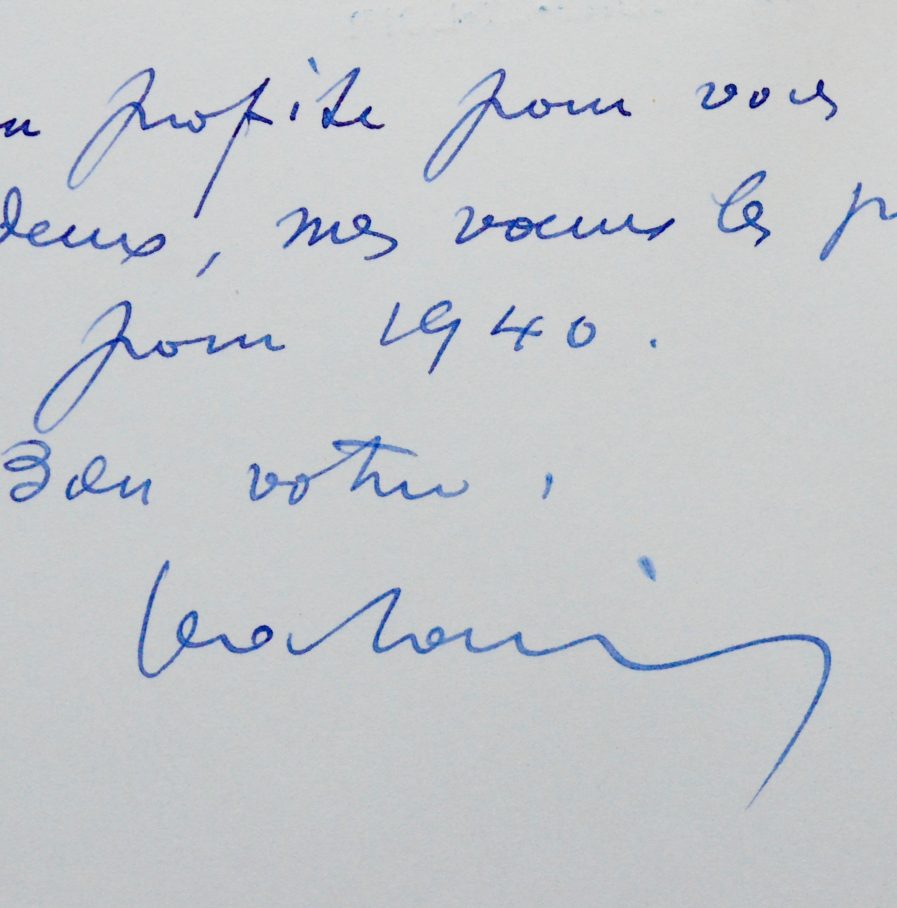 n profite pour vous
deux, mes vœux les p
pour 1940.
Bien votre,